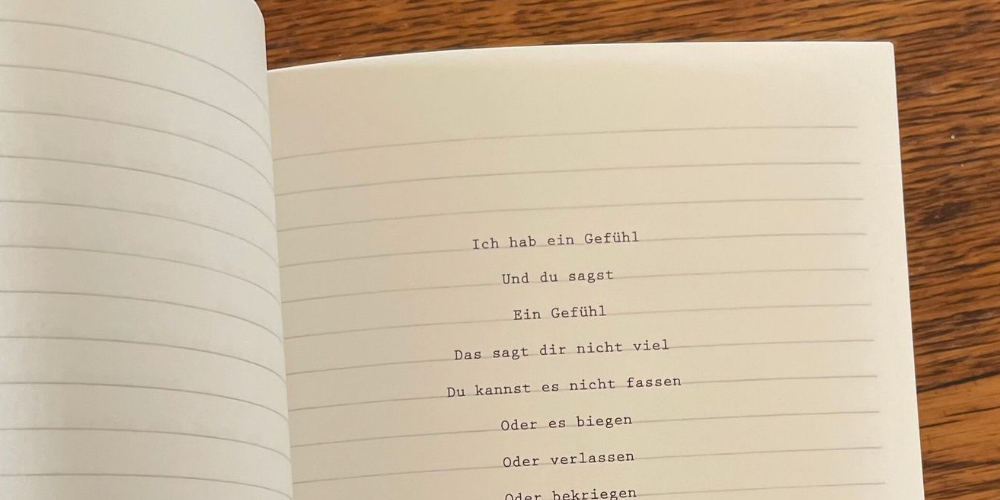 Ich hab ein Gefühl
Und du sagst
Ein Gefühl
Das sagt dir nicht viel
Du kannst es nicht fassen
Oder es biegen
Oder verlassen
Oder bekriegen